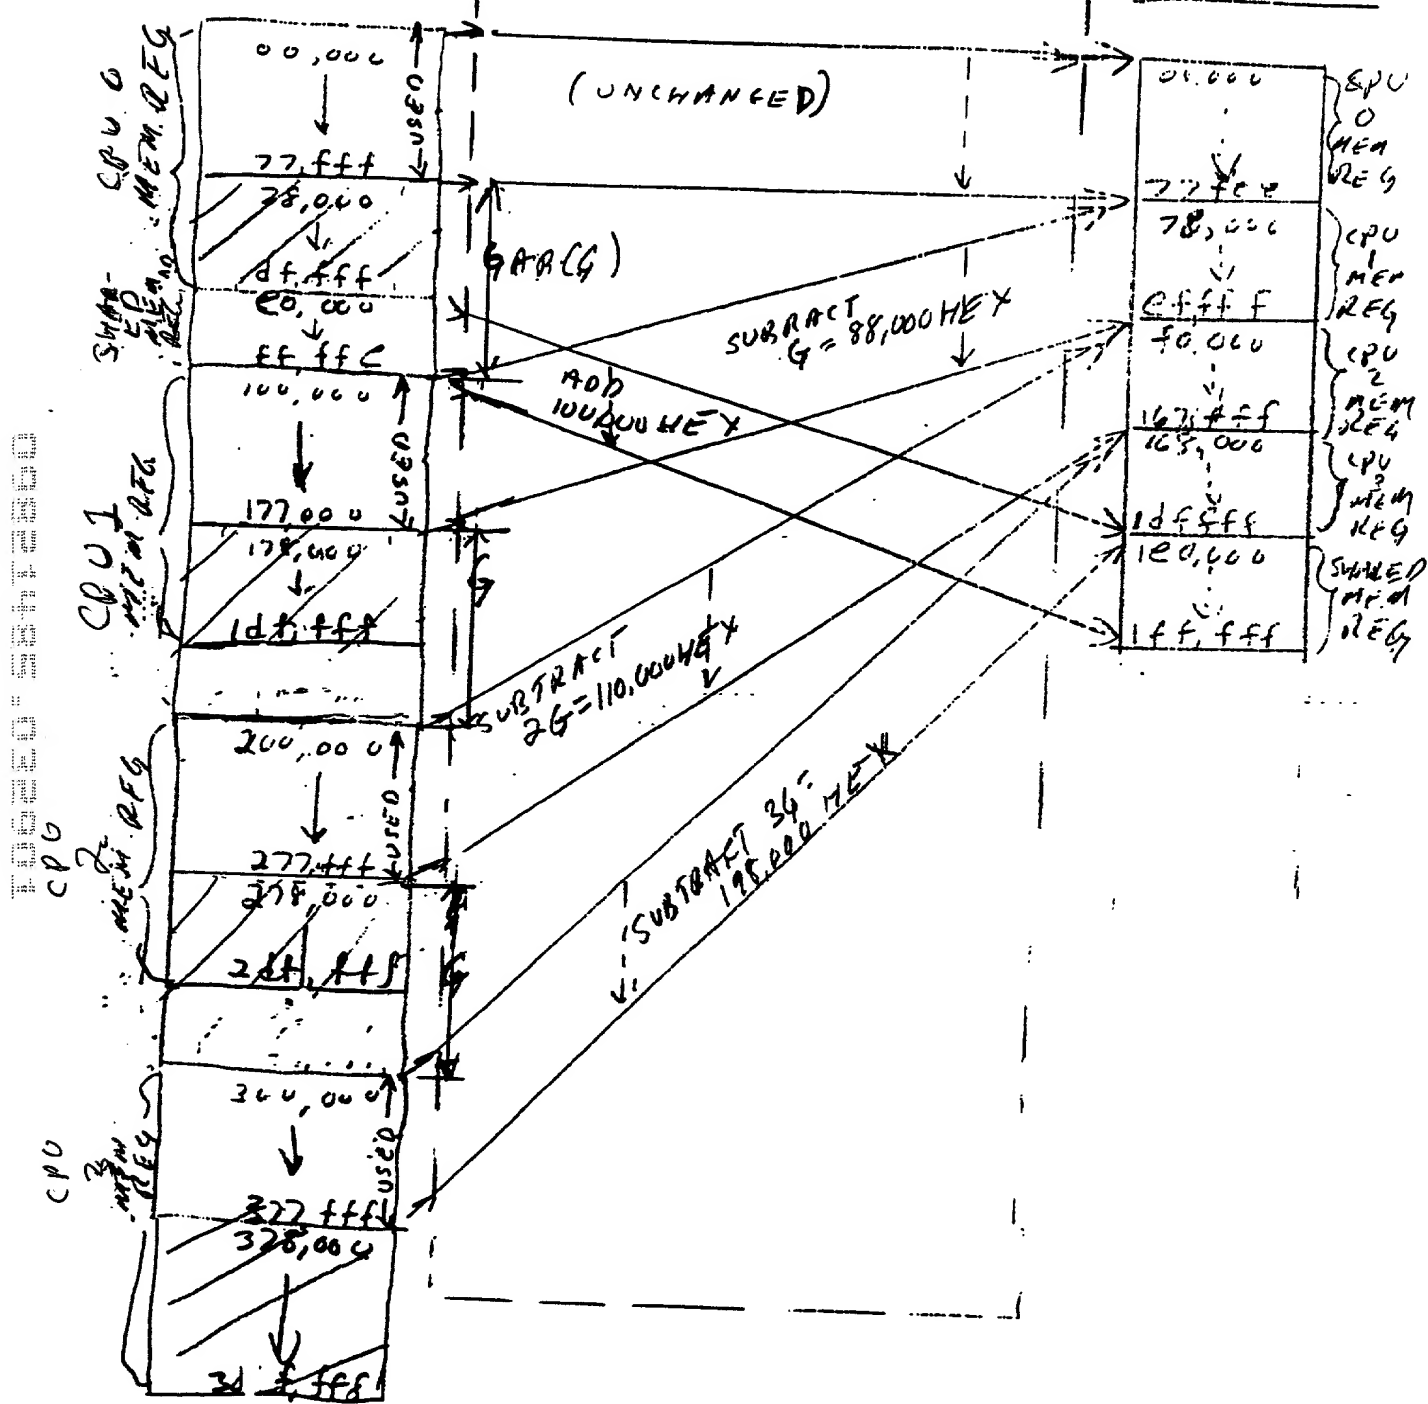 CPU 0
MEM. REG
00,000
USED
77,fff
78,000
df,fff
SHAR-
ED
MEM
REG
e0,000
ff,ffe
(UNCHANGED)
GAP(G)
SUBRACT
G=88,000HEX
ADD
100,000 HEX
CPU 1
MEM REG
100,000
USED
177,000
178,000
1df,fff
G
SUBTRACT
2G=110,000HEX
CPU
2
MEM REG
200,000
USED
277,fff
278,000
2df,fff
G
SUBTRACT 3G=
198,000 HEX
CPU
3
MEM
REG
300,000
USED
377 fff
378,000
3d f,fff
00,000
77fff
CPU
0
MEM
REG
78,000
effff
CPU
1
MEM
REG
f0,000
167,fff
CPU
2
MEM
REG
168,000
1dffff
CPU
3
MEM
REG
1e0,000
1ff,fff
SHARED
MEM
REG